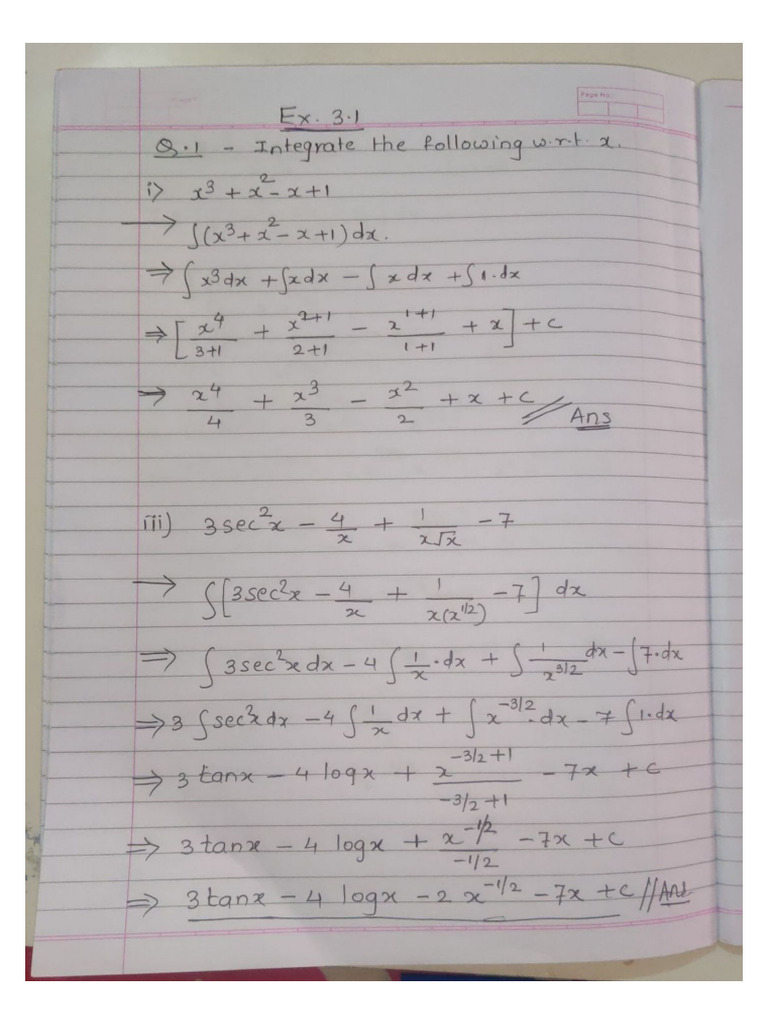 Page No.
Ex. 3.1
Q.1 - Integrate the following w.r.t. x.
i> x³ + x² - x + 1
→ ∫(x³ + x² - x + 1) dx.
⇒ ∫ x³ dx + ∫x dx - ∫ x dx + ∫ 1. dx
⇒ [x⁴/(3+1) + x²⁺¹/(2+1) - x¹⁺¹/(1+1) + x] + c
→ x⁴/4 + x³/3 - x²/2 + x + c // Ans
iii) 3 sec²x - 4/x + 1/(x√x) - 7
→ ∫[3sec²x - 4/x + 1/(x(x^1/2)) - 7] dx
⇒ ∫ 3sec²x dx - 4 ∫ 1/x · dx + ∫ 1/x^3/2 dx - ∫ 7. dx
⇒ 3 ∫ sec²x dx - 4 ∫ 1/x dx + ∫ x^-3/2 · dx - 7 ∫ 1. dx
⇒ 3 tanx - 4 logx + x^(-3/2 +1)/(-3/2 +1) - 7x + c
⇒ 3 tanx - 4 logx + x^-1/2/(-1/2) - 7x + c
⇒ 3 tanx - 4 logx - 2 x^-1/2 - 7x + c // Ans.